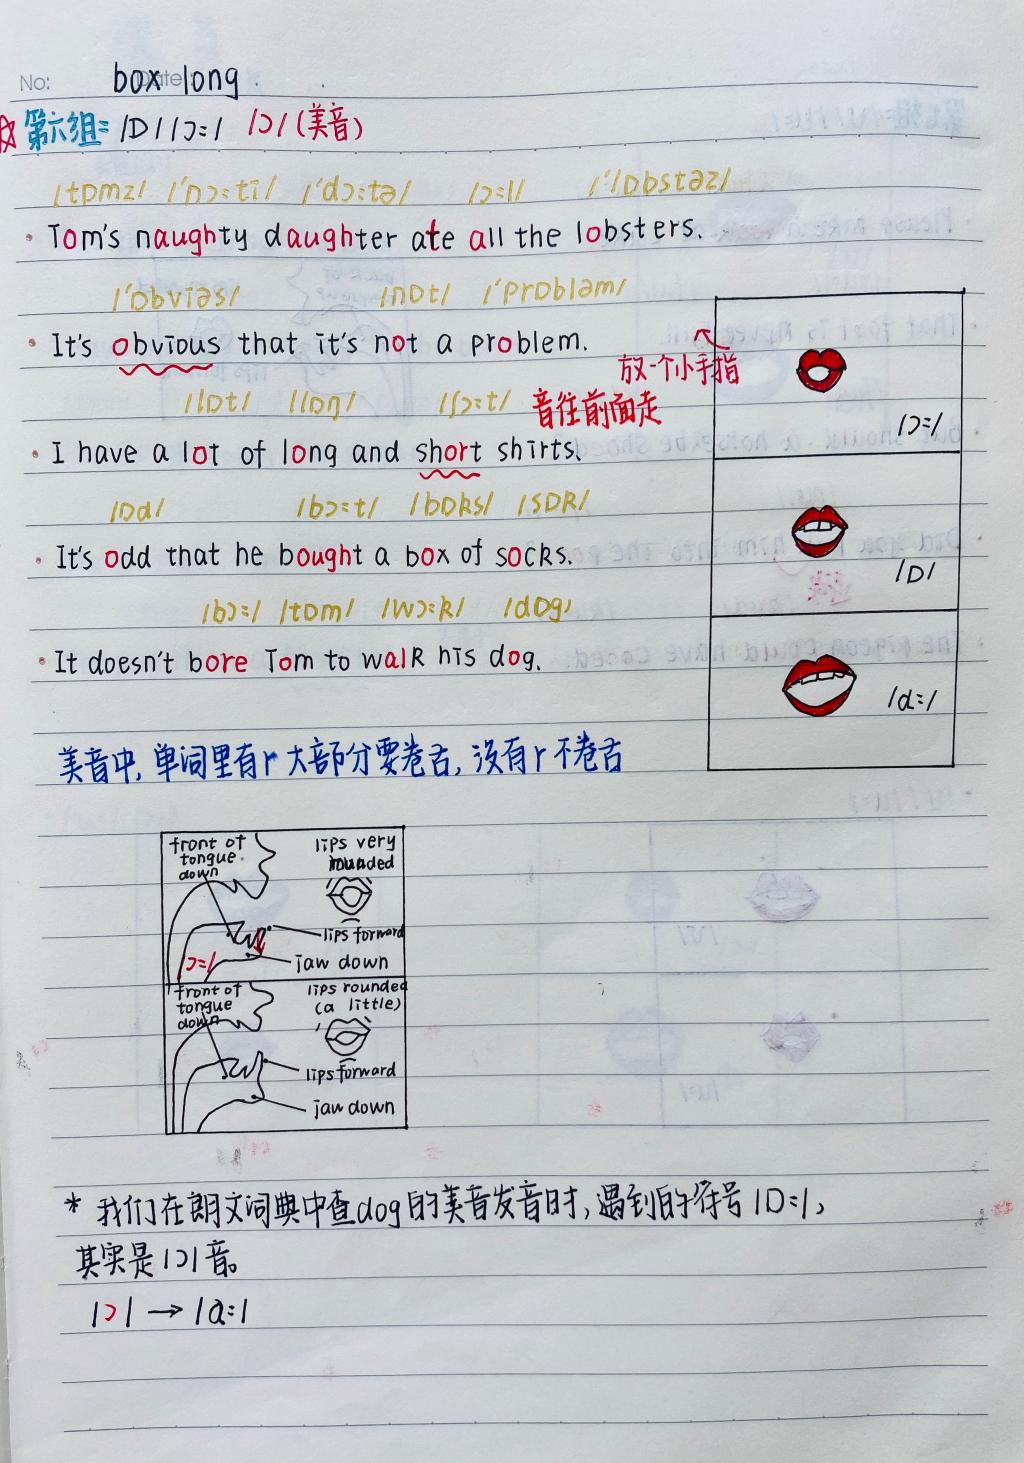 No:
Date
box long
第六组= /ɒ/ /ɔ=/ /ɔ/ (美音)
/tɒmz/ /'nɔ=tī/ /'dɔ=tə/ /ɔ=l/ /'lɒbstəz/
Tom's naughty daughter ate all the lobsters.
/'ɒbviəs/ /nɒt/ /'prɒbləm/
It's obvious that it's not a problem.
放一个小手指
/lɒt/ /lɒŋ/ /ʃɔ=t/ 音往前面走
/ɔ=/
I have a lot of long and short shirts.
/ɒd/ /bɔ=t/ /bɒks/ /sɒk/
It's odd that he bought a box of socks.
/ɒ/
/bɔ=/ /tɒm/ /wɔ=k/ /dɒg/
It doesn't bore Tom to walk his dog.
/ɑ=/
美音中, 单词里有r大部分要卷舌, 没有r不卷舌
front of tongue down
lips very rounded
lips forward
ɔ=/
jaw down
front of tongue down
lips rounded (a little)
lips forward
jaw down
* 我们在朗文词典中查dog的美音发音时, 遇到的符号/ɒ=/,
其实是/ɔ/音。
/ɔ/ → /ɑ=/